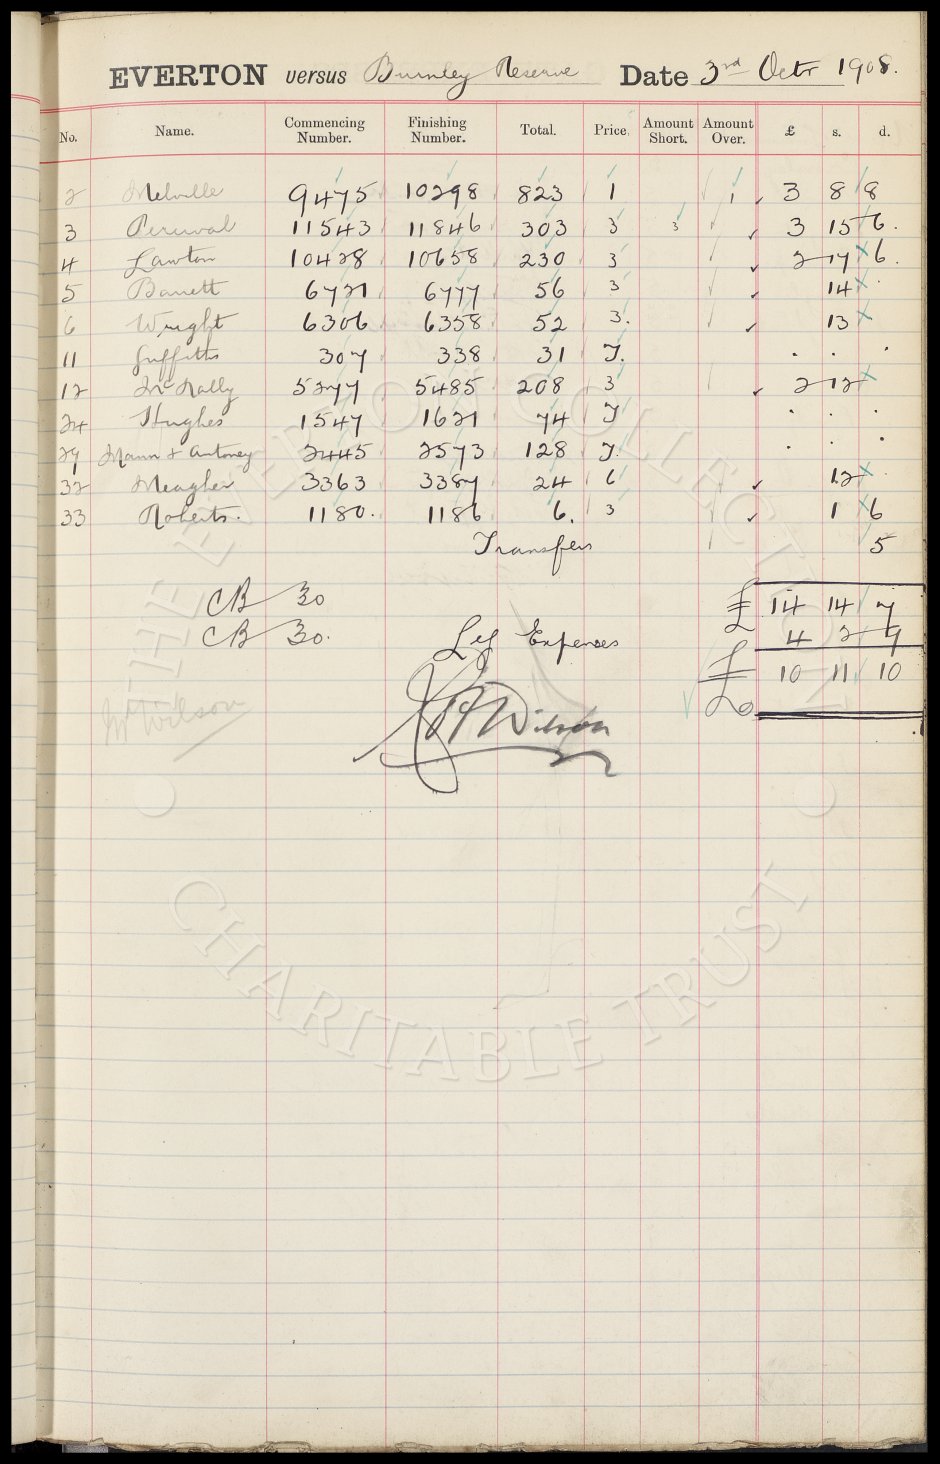 EVERTON versus Burnley Reserve Date 3rd Octr 1908.
No. Name. Commencing Number. Finishing Number. Total. Price. Amount Short. Amount Over. £ s. d.
2 Melville 9475 10298 823 1 1 3 8 8
3 Percival 11543 11846 303 3 3 3 15 6.
4 Lawton 10428 10658 230 3 2 17 6.
5 Barrett 6721 6777 56 3 14
6 Wright 6306 6358 52 3. 13
11 Griffiths 307 338 31 T. . . .
12 McNally 5277 5485 208 3 2 12
24 Hughes 1547 1621 74 T . . .
29 Mann & Antoney 2445 2573 128 T. . . .
32 Meagher 3363 3387 24 6 12
33 Roberts. 1180. 1186 6. 3 1 6
Transfers 5
CB 30 £ 14 14 7
CB 30. Less Expenses 4 2 9
£ 10 11 10
Wilson
Wilson
THE EVERTON COLLECTION
CHARITABLE TRUST